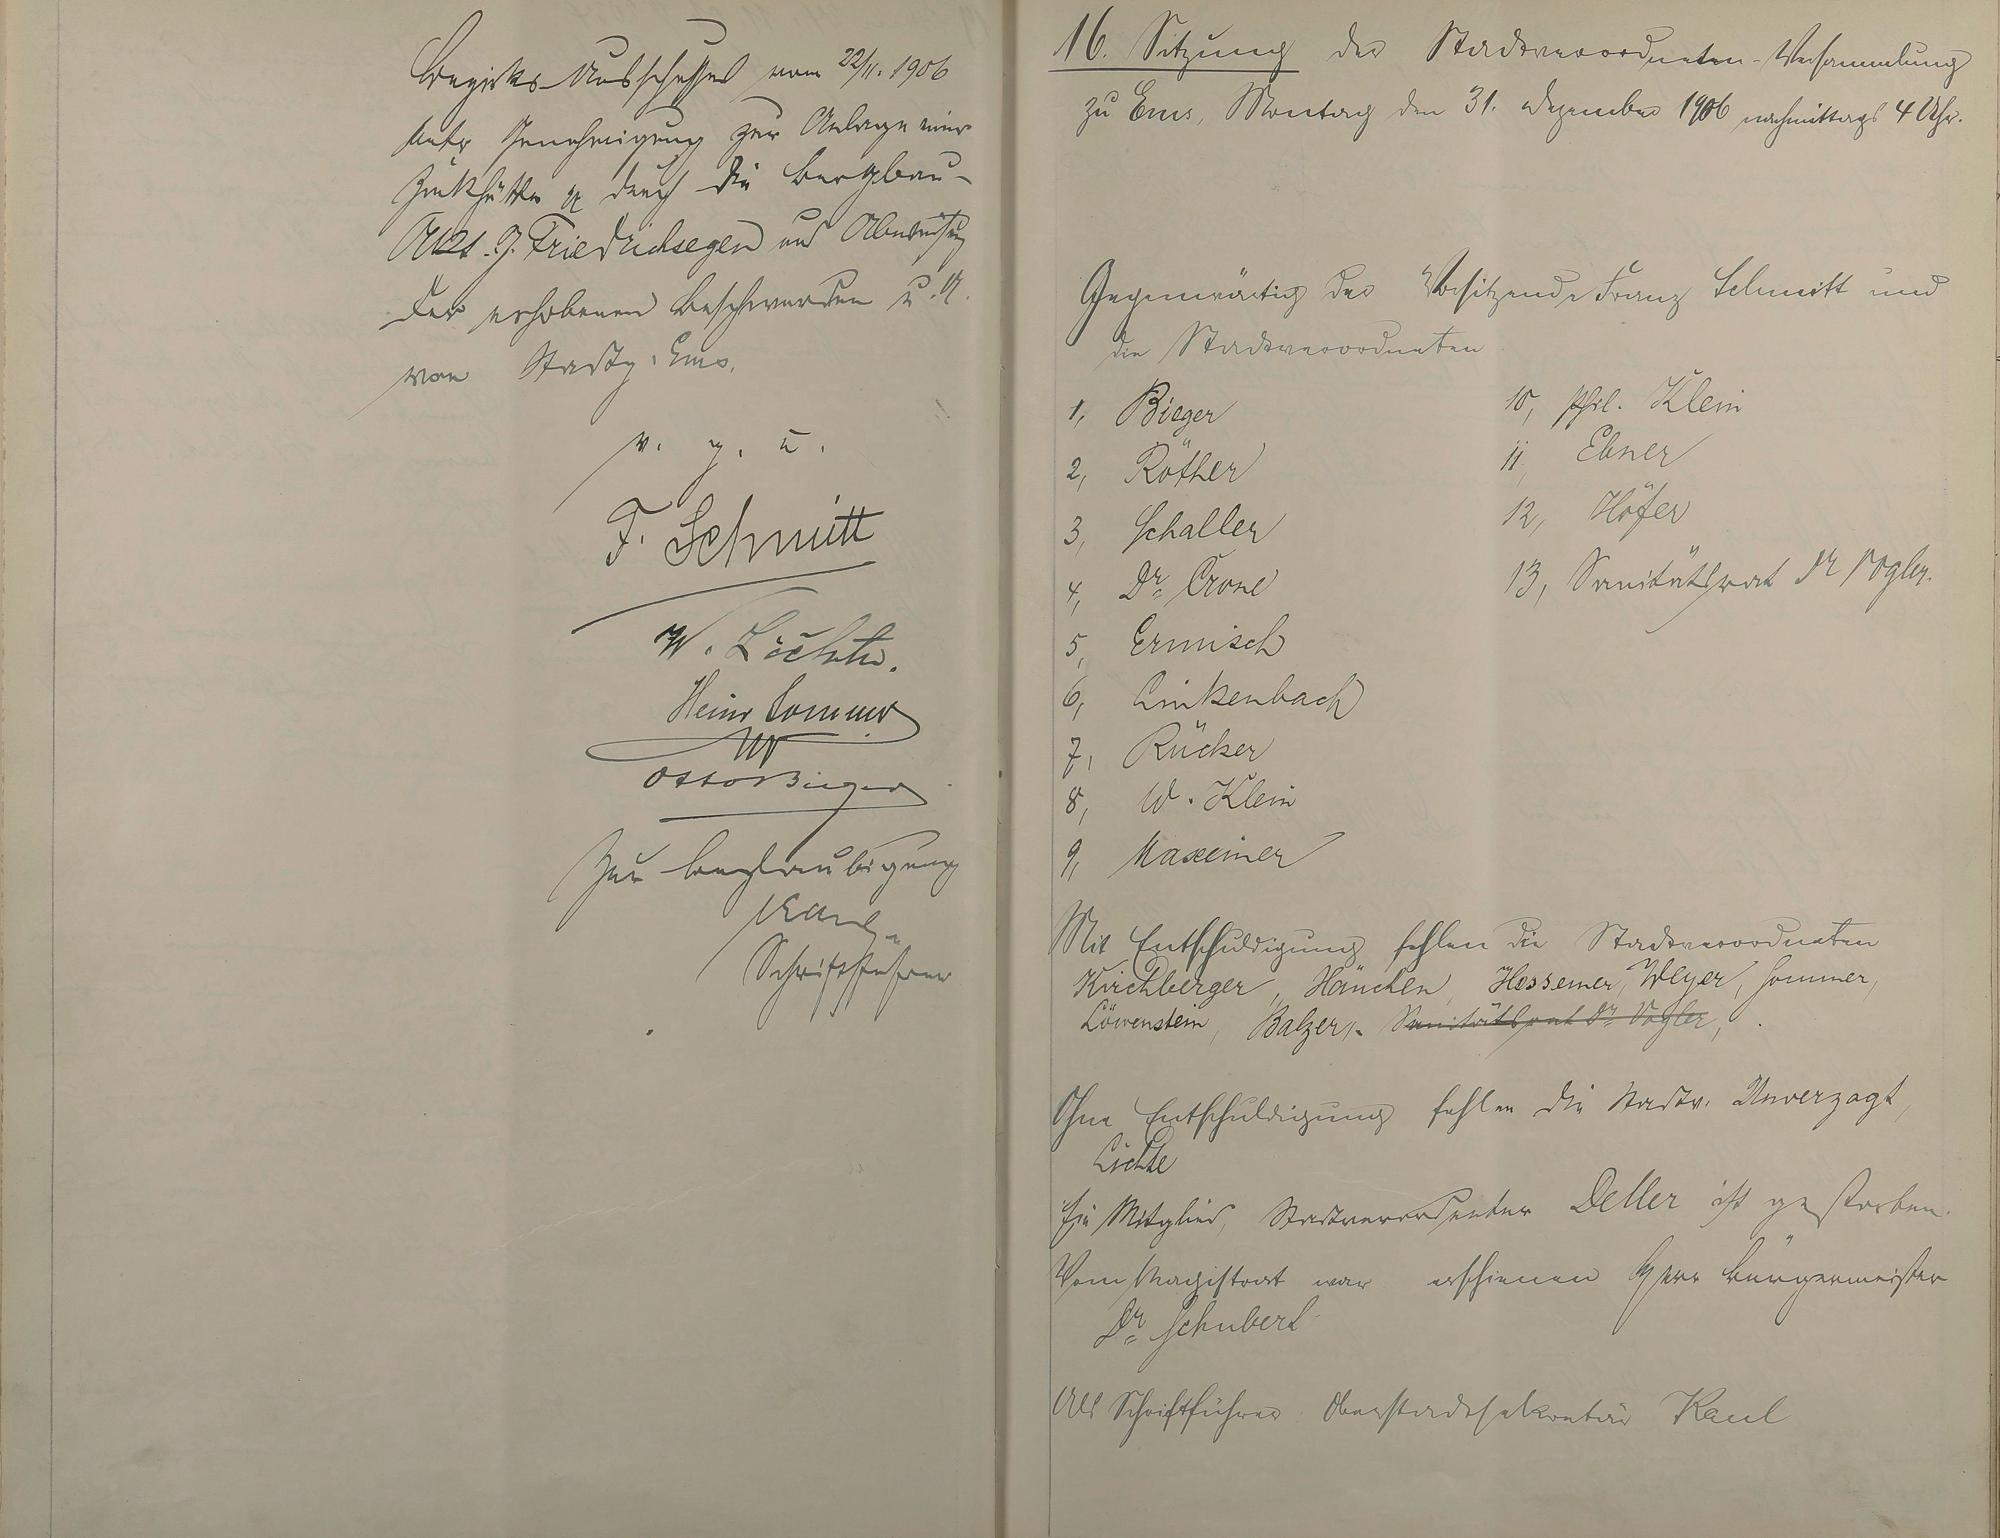 Bezirks-Ausschusses vom 22/11. 1906
betr. Genehmigung zur Anlage einer
Zinkhütte pp durch die Bergbau-
Akt. G. Friedrichssegen und Abweisung
der erhobenen Beschwerden u. A.
von Stadtg. Ems.
v. g. u.
F. Schmitt
W. Löchte.
Heinr Sommer
Otto Bieger
Zur Beglaubigung
Kaul
Schriftführer
16. Sitzung der Stadtverordneten-Versammlung
zu Ems, Montag den 31. Dezember 1906 nachmittags 4 Uhr.
Gegenwärtig der Vorsitzende Franz Schmitt und
die Stadtverordneten
1, Bieger
2, Röther
3, Schaller
4, Dr. Crone
5, Ermisch
6, Linkenbach
7, Rücker
8, W. Klein
9, Maxeiner
10, Phil. Klein
11 Ebner
12, Höfer
13, Sanitätsrat Dr Vogler.
Mit Entschuldigung fehlen die Stadtverordneten
Kirchberger, Hänchen, Hessemer, Weyer, Sommer,
Löwenstein, Balzer, Sanitätsrat Dr Vogler,
Ohne Entschuldigung fehlen die Stadtv. Unverzagt,
Lichte
Ein Mitglied, Stadtverordneter Deller ist gestorben.
Vom Magistrat war erschienen Herr Bürgermeister
Dr. Schubert
Als Schriftführer Oberstadtsekretär Kaul